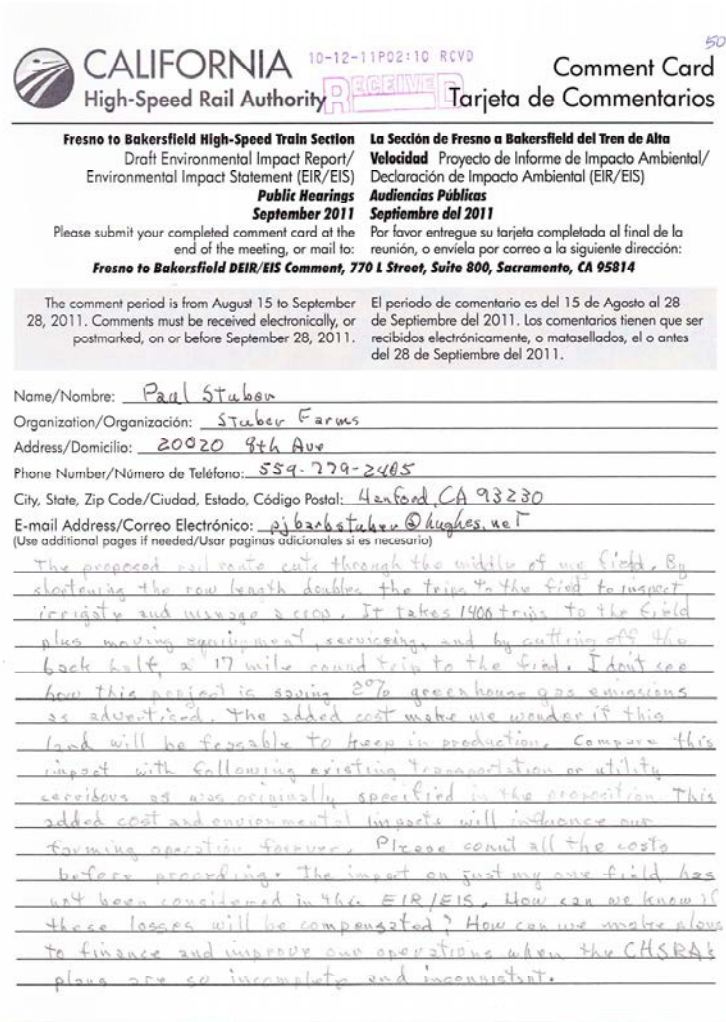 50
CALIFORNIA
High-Speed Rail Authority
10-12-11P02:10 RCVD
RECEIVED
Comment Card
Tarjeta de Comentarios
Fresno to Bakersfield High-Speed Train Section
Draft Environmental Impact Report/
Environmental Impact Statement (EIR/EIS)
Public Hearings
September 2011
Please submit your completed comment card at the
end of the meeting, or mail to:
La Sección de Fresno a Bakersfield del Tren de Alta
Velocidad Proyecto de Informe de Impacto Ambiental/
Declaración de Impacto Ambiental (EIR/EIS)
Audiencias Públicas
Septiembre del 2011
Por favor entregue su tarjeta completada al final de la
reunión, o envíela por correo a la siguiente dirección:
Fresno to Bakersfield DEIR/EIS Comment, 770 L Street, Suite 800, Sacramento, CA 95814
The comment period is from August 15 to September
28, 2011. Comments must be received electronically, or
postmarked, on or before September 28, 2011.
El periodo de comentario es del 15 de Agosto al 28
de Septiembre del 2011. Los comentarios tienen que ser
recibidos electrónicamente, o matasellados, el o antes
del 28 de Septiembre del 2011.
Name/Nombre: Paul Stuber
Organization/Organización: Stuber Farms
Address/Domicilio: 20020 8th Ave
Phone Number/Número de Teléfono: 559-779-2485
City, State, Zip Code/Ciudad, Estado, Código Postal: Hanford, CA 93230
E-mail Address/Correo Electrónico: pjbarbstuber@hughes.net
(Use additional pages if needed/Usar paginas adicionales si es necesario)
The proposed rail route cuts through the middle of my field. By
shortening the row length doubles the trips to the field to inspect
irrigate and manage a crop. It takes 1400 trips to the field
plus moving equipment, serviceing, and by cutting off the
back half, a 17 mile round trip to the field. I dont see
how this project is saving 2% greenhouse gas emissions
as advertised. The added cost make me wonder if this
land will be feasable to keep in production. Compare this
impact with following existing transportation or utility
corridors as was originally specified in the proposition This
added cost and environmental impacts will influence our
farming operation forever. Please count all the costs
before proceeding. The impact on just my one field has
not been considered in this EIR/EIS. How can we know if
these losses will be compensated? How can we make plans
to finance and improve our operations when the CHSRA's
plans are so incomplete and inconsistant.